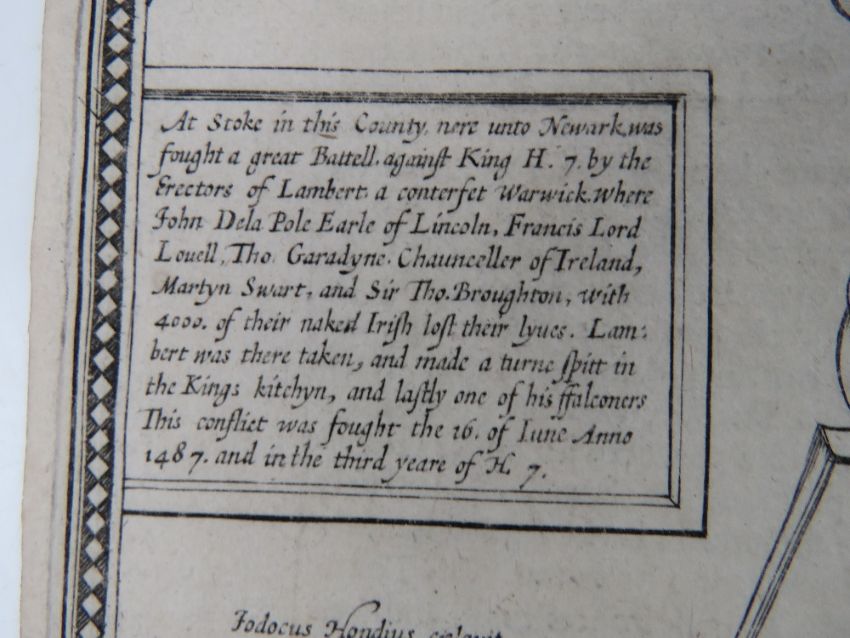 At Stoke in this County, nere unto Newark, was
fought a great Battell, against King H. 7. by the
Erectors of Lambert a conterfet Warwick. Where
John Dela Pole Earle of Lincoln, Francis Lord
Louell, Tho. Garadyne. Chaunceller of Ireland,
Martyn Swart, and Sir Tho. Broughton, with
4000. of their naked Irish lost their lyues. Lam:
bert was there taken, and made a turne spitt in
the Kings kitchyn, and lastly one of his ffalconers
This conflict was fought the 16. of Iune Anno
1487. and in the third yeare of H. 7.
Jodocus Hondius celavit